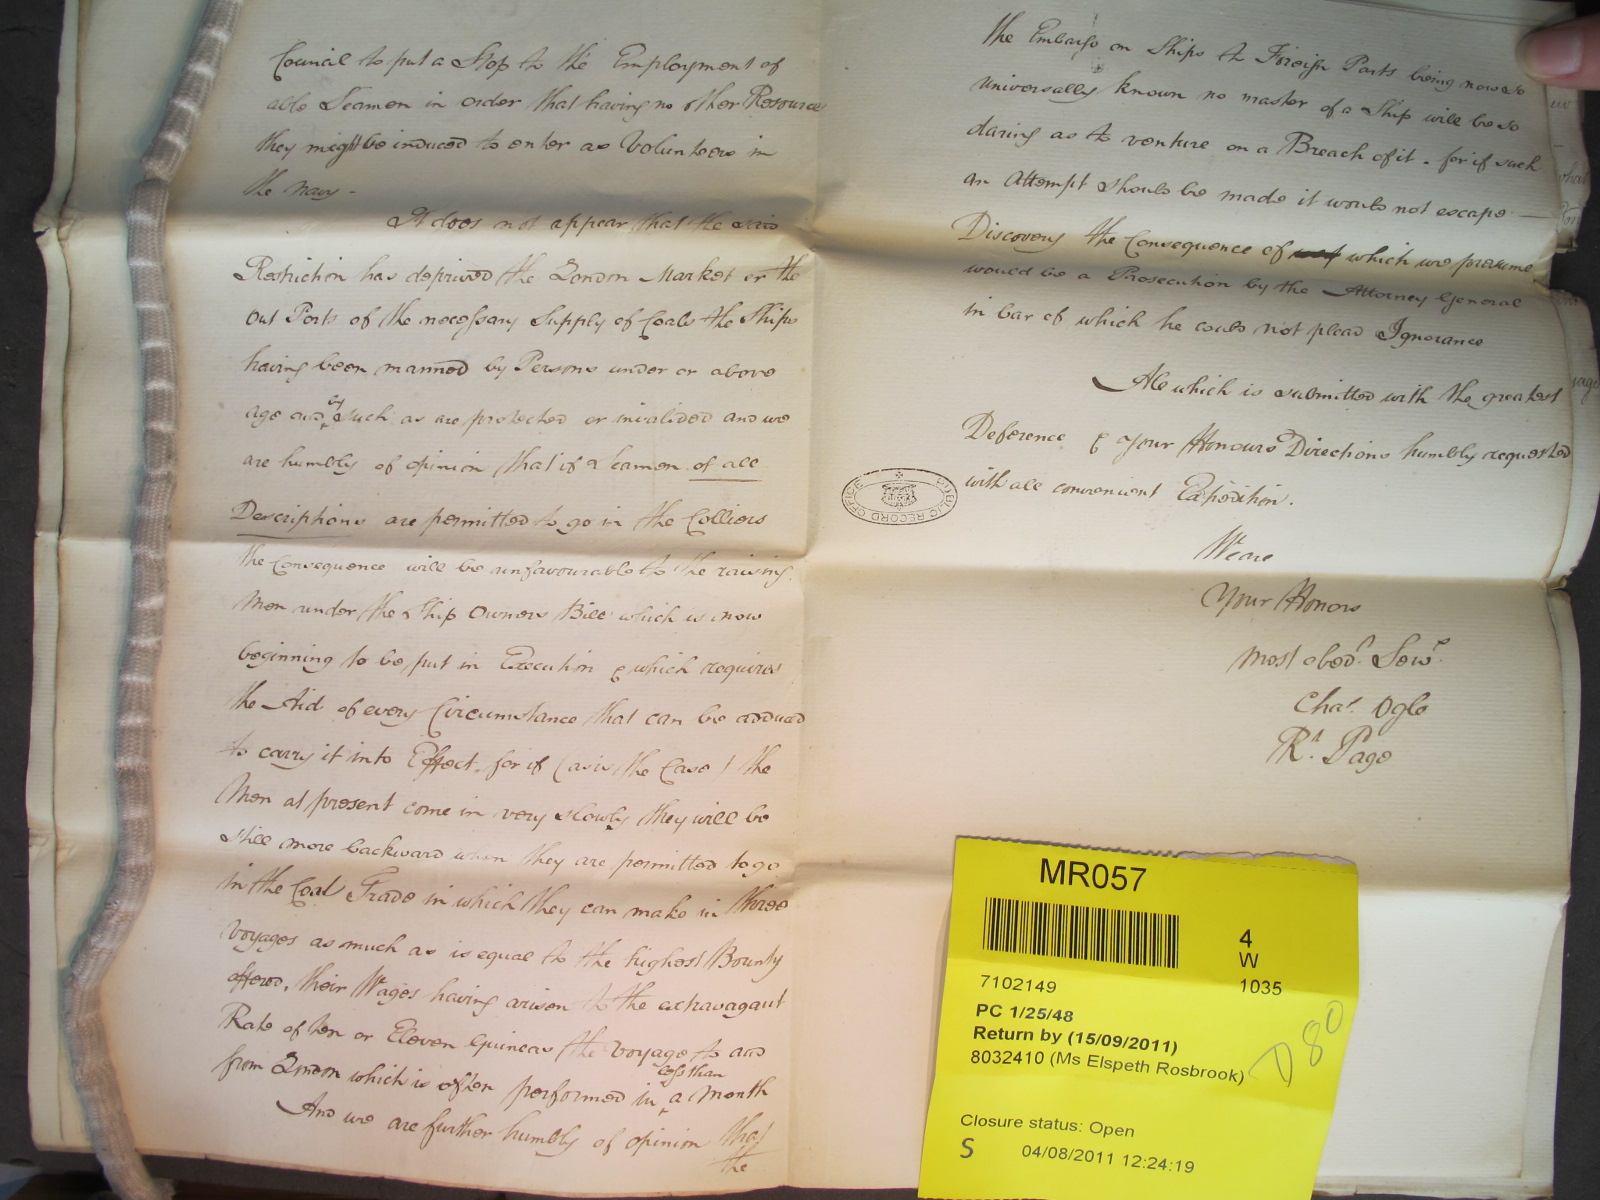 Council to put a Stop to the Employment of
able Seamen in order that having no other Resource
they might be induced to enter as Volunteers in
the Navy -
It does not appear that the said
Restriction has deprived the London Market or the
Out Ports of the necessary Supply of Coals the Ships
having been manned by Persons under or above
age and by such as are protected or invalided and we
are humbly of opinion that if Seamen of all
Descriptions are permitted to go in the Colliers
the Consequence will be unfavourable to the raising
Men under the Ship Owners Bill which is now
beginning to be put in Execution & which requires
the Aid of every Circumstance that can be adduced
to carry it into Effect. for if (as is the Case) the
Men at present come in very slowly they will be
still more backward when they are permitted to go
in the Coal Trade in which they can make in three
Voyages as much as is equal to the highest Bounty
offered, their Wages having arisen to the extravagant
Rate of ten or Eleven Guineas the Voyage to and
from London which is often performed in less than a Month
And we are further humbly of opinion that
the
the Embargo on Ships to Foreign Parts being now so
universally known no master of a Ship will be so
daring as to venture on a Breach of it - for if such
an Attempt should be made it would not escape
Discovery the Consequence of which we presume
would be a Prosecution by the Attorney General
in bar of which he could not plead Ignorance
All which is submitted with the greatest
Deference & Your Honours Directions humbly requested
with all convenient Expedition.
We are
Your Honors
Most obedt. Servts.
Chas. Ogle
Rd. Page
PUBLIC RECORD OFFICE
MR057
4
W
7102149
1035
PC 1/25/48
Return by (15/09/2011)
8032410 (Ms Elspeth Rosbrook)
D 80
Closure status: Open
S 04/08/2011 12:24:19